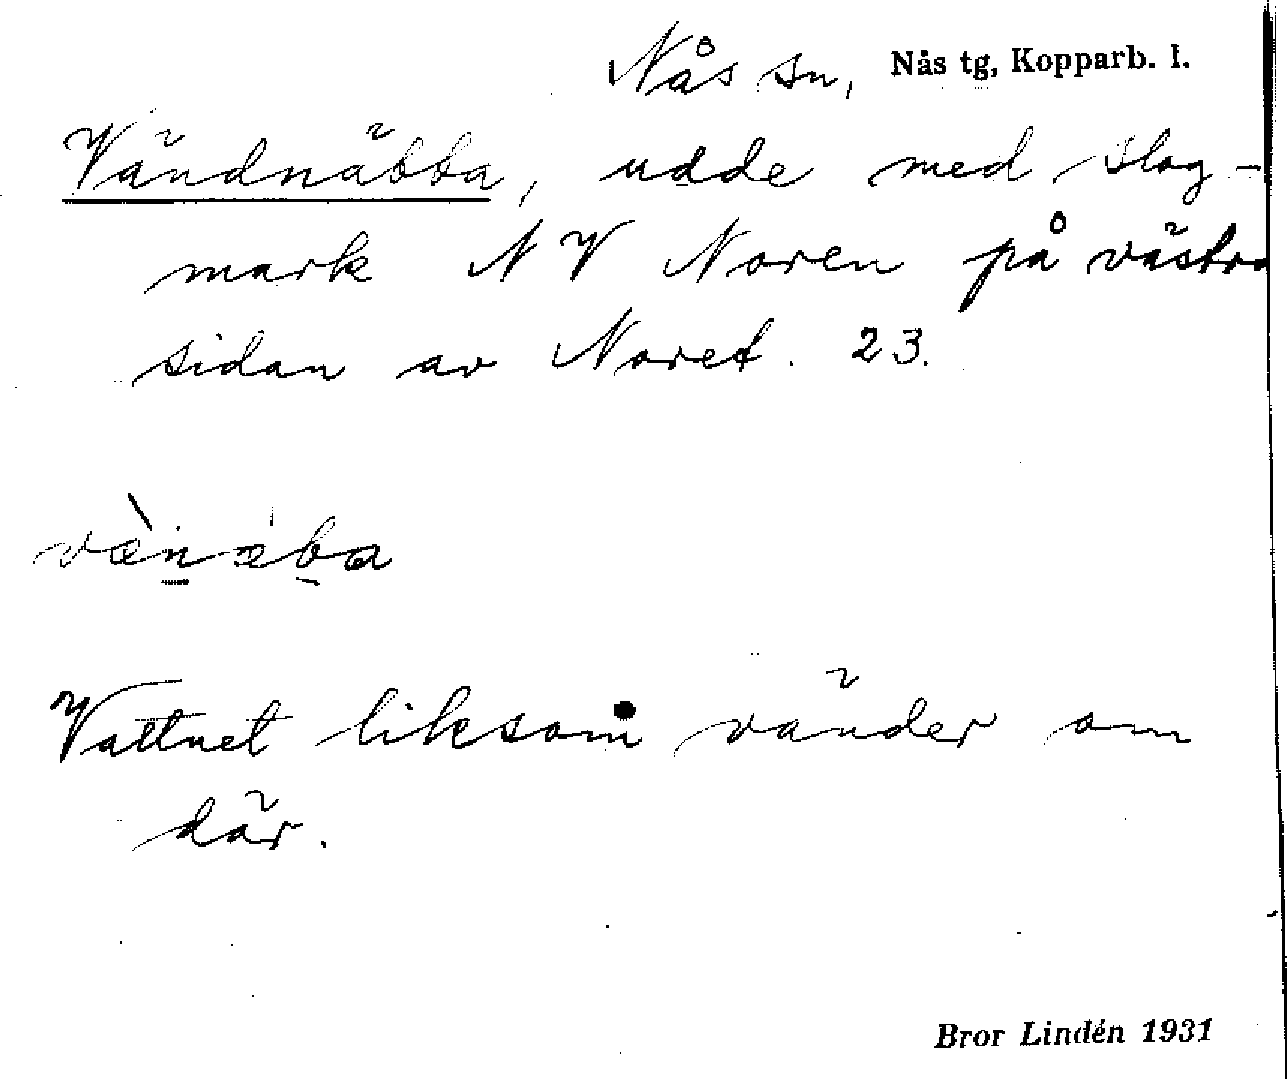 Nås sn, Nås tg, Kopparb. l.
Vändnäbba, udde med slog-
mark NV Noren på västra
sidan av Noret. 23.
væ̀næba
Vattnet liksom vänder om
där.
Bror Lindén 1931